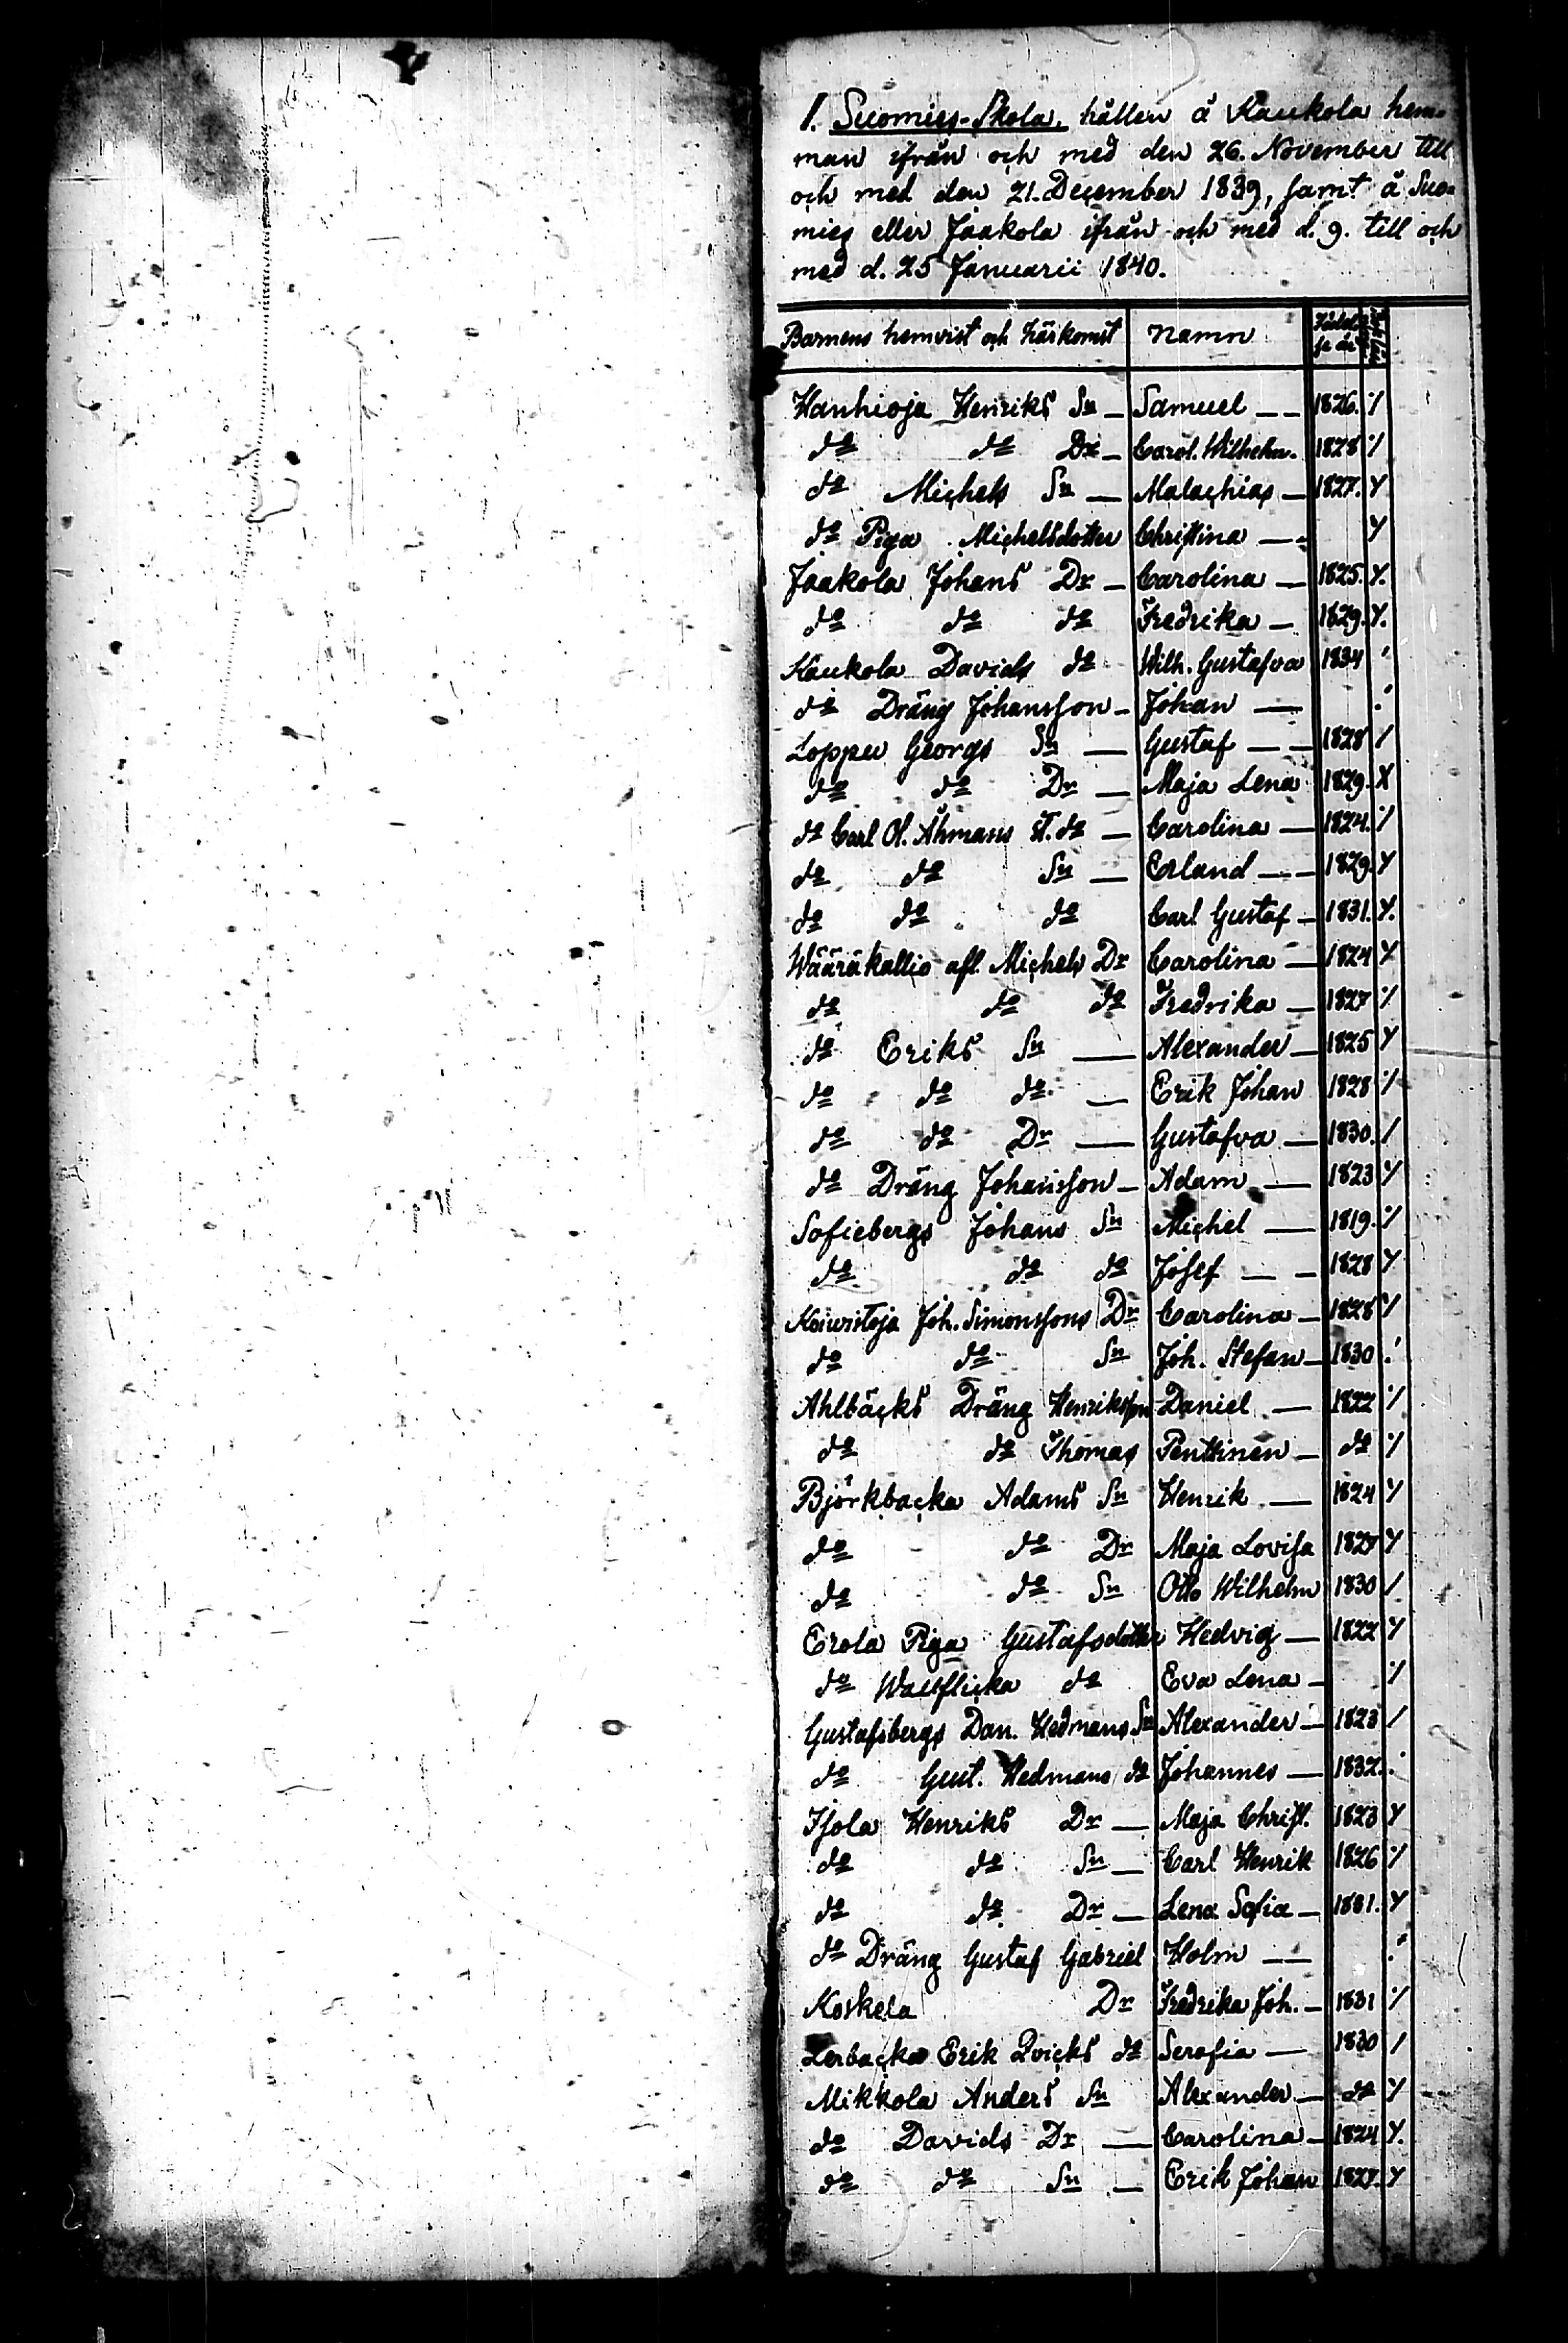 1. Suomies-Skola, hållen å Kaukola hem-
man ifrån och med den 26. November till
och med den 21. December 1839, samt å Suo-
mies eller Jaakola ifrån och med d. 9. till och
med d. 25 Januarii 1840.
Barnens hemvist och härkomst Namn Födel
se år
Hanhioja Henriks Sn — Samuel — — 1826. ⁒
do do Dr — Carol. Wilhelm. 1828 ⁒
do Michels Sn — Malachias — 1827. Y
do Piga Michelsdotter Christina — Y
Jaakola Johans Dr — Carolina — 1825. Y.
do do do Fredrika — 1829. Y.
Kaukola Davids do Wilh. Gustafva 1834 '
do Dräng Johansson — Johan —
Loppu Georgs Sn — Gustaf — — 1828 /
do do Dr — Maja Lena 1829. X
do Carl Ol. Åhmans do — Carolina — 1824. ⁒
do do Sn — Erland — — 1829. Y
do do do Carl Gustaf — 1831. Y.
Wääräkallio afl. Michels Dr Carolina — 1824 Y
do do do Fredrika — 1827 ⁒
do Eriks Sn — Alexander — 1825 Y
do do do — Erik Johan 1828 ⁒
do do Dr — Gustafva — 1830. /
do Dräng Johansson — Adam — 1823 Y
Sofiebergs Johans Sn Michel — 1819. ⁒
do do do Josef — — 1828 Y
Koivistoja Joh. Simonssons Dr Carolina — 1828 ⁒
do do Sn Joh. Stefan — 1830 .'
Ahlbäcks Dräng Henriksson Daniel — 1822 ⁒
do do Thomas Penttinen — do ⁒
Björkbacka Adams Sn Henrik — 1824 Y
do do Dr Maja Lovisa 1827 Y
do do Sn Otto Wilhelm 1830 /
Erola Piga Gustafsdotter Hedvig — 1822 Y
do Wallflicka do Eva Lena — ⁒
Gustafsbergs Dan. Hedmans Sn Alexander — 1823 /
do Gust. Hedmans do Johannes — 1832.
Isola Henriks Dr — Maja Christ. 1823 Y
do do Sn — Carl Henrik 1826 ⁒
do do Dr — Lena Sofia — 1831. Y
do Dräng Gustaf Gabriel Holm — —
Koskela Dr Fredrika Joh. — 1831 ⁒
Lerbacka Erik Qvicks do Serafia — 1830 /
Mikkola Anders Sn Alexander — do Y
do Davids Dr — Carolina — 1824 Y.
do do Sn — Erik Johan 1827. Y